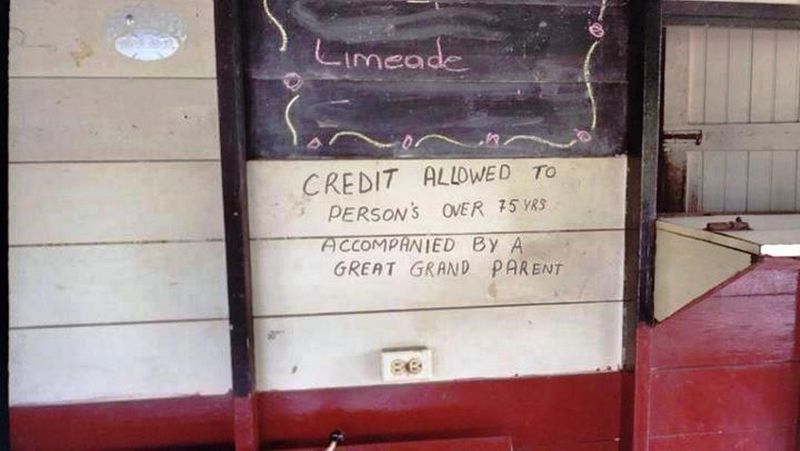 Limeade
CREDIT ALLOWED TO
PERSON'S OVER 75 YRS
ACCOMPANIED BY A
GREAT GRAND PARENT